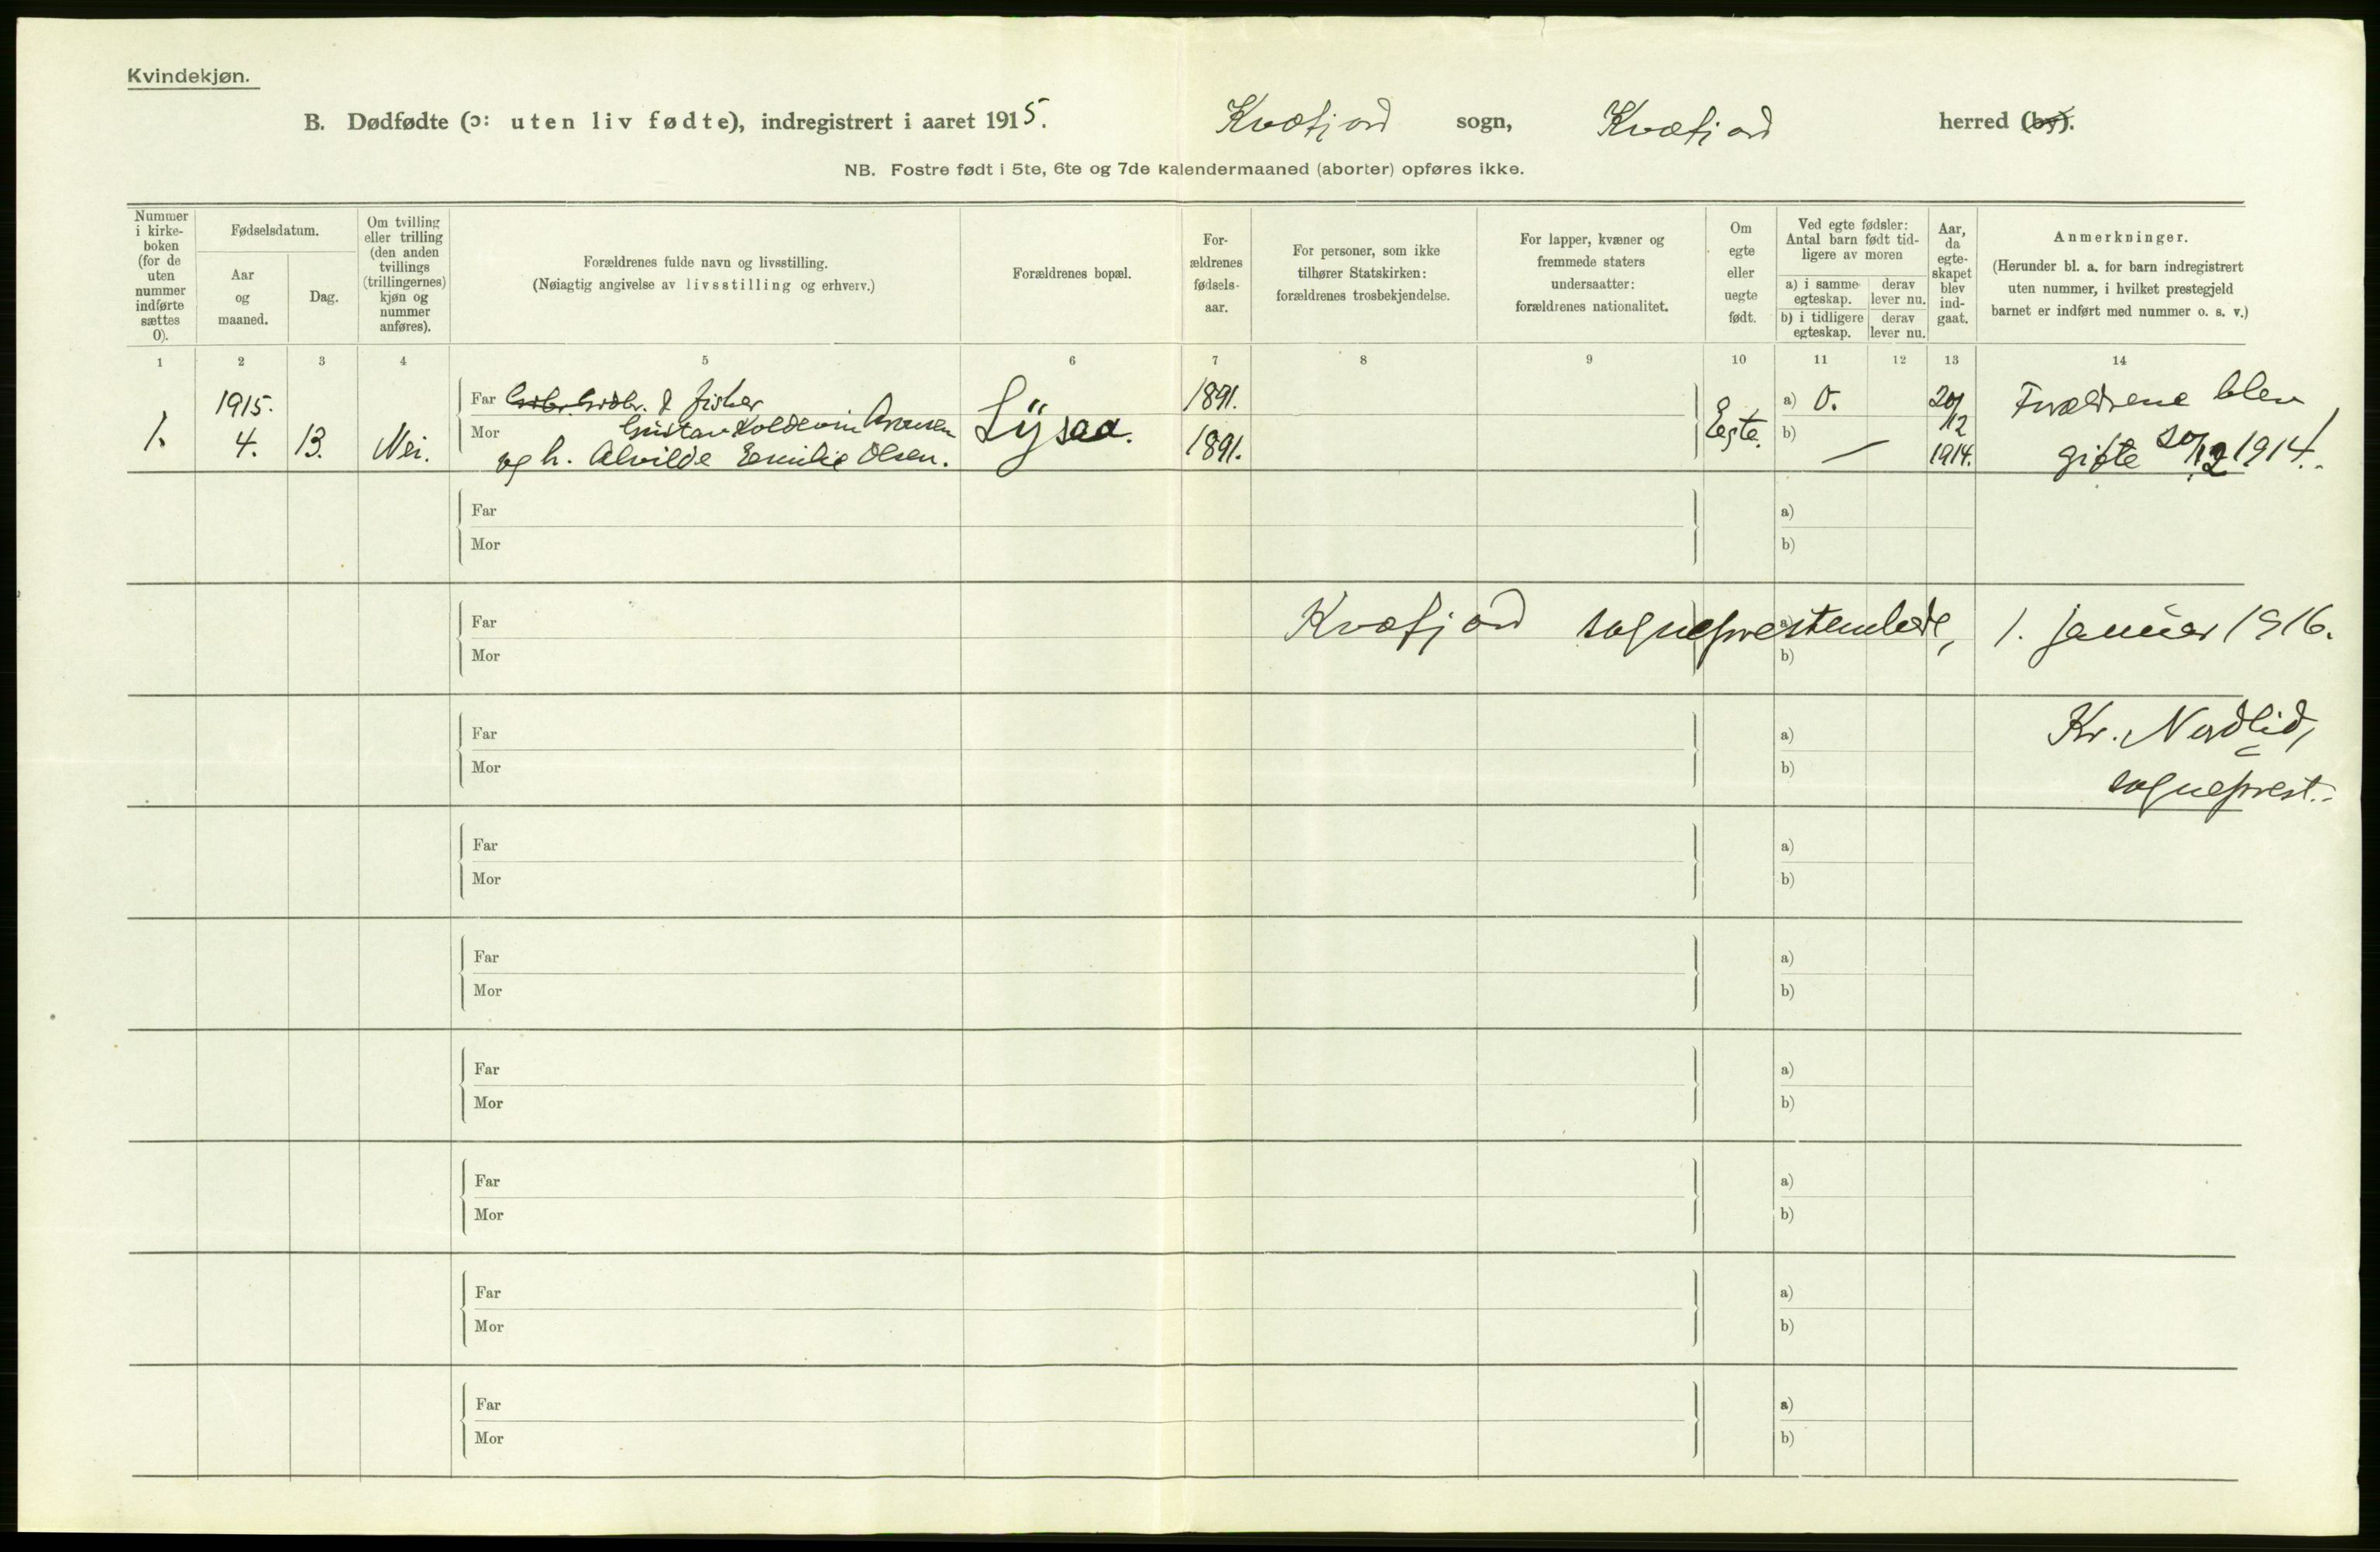 Kvindekjøn.
B. Dødfødte (ɔ: uten liv fødte), indregistrert i aaret 1915. Kvæfjord sogn, Kvæfjord herred (by).
NB. Fostre født i 5te, 6te og 7de kalendermaaned (aborter) opføres ikke.
Nummer i kirke-boken (for de uten nummer indførte sættes 0).
Fødselsdatum.
Aar og maaned.
Dag.
Om tvilling eller trilling (den anden tvillings (trillingernes) kjøn og nummer anføres).
Forældrenes fulde navn og livsstilling.
(Nøiagtig angivelse av livsstilling og erhverv.)
Forældrenes bopæl.
For-ældrenes fødsels-aar.
For personer, som ikke tilhører Statskirken: forældrenes trosbekjendelse.
For lapper, kvæner og fremmede staters undersaatter: forældrenes nationalitet.
Om egte eller uegte født.
Ved egte fødsler: Antal barn født tid-ligere av moren
a) i samme egteskap.
derav lever nu.
b) i tidligere egteskap.
derav lever nu.
Aar, da egte-skapet blev ind-gaat.
Anmerkninger.
(Herunder bl. a. for barn indregistrert uten nummer, i hvilket prestegjeld barnet er indført med nummer o. s. v.)
1 2 3 4 5 6 7 8 9 10 11 12 13 14
1. 1915. 4. 13. Nei.
Far Grdbr. & fisker
Mor Gustav Koldevin
og h. Alvilde Emilie Olsen.
Lysaa.
1891.
1891.
Egte.
a) 0.
b) —
20/12 1914.
Forældrene blev
gifte 20/12 1914.
Far
Mor
a)
b)
Far
Mor
b)
Kvæfjord sogneprestembede, 1. januar 1916.
Far
Mor
a)
b)
Kr. Nordlid,
sogneprest.
Far
Mor
a)
b)
Far
Mor
a)
b)
Far
Mor
a)
b)
Far
Mor
a)
b)
Far
Mor
a)
b)
Far
Mor
a)
b)